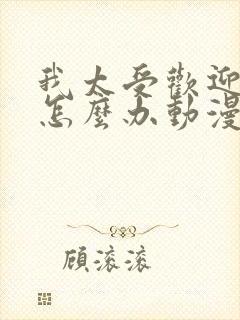 我太受歡迎
怎麼办動漫
顧滾滾